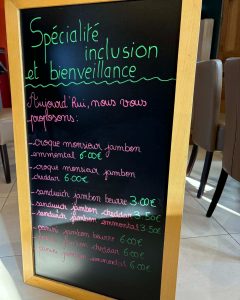 Spécialité
inclusion
et bienveillance
Aujourd'hui, nous vous
proposons:
_ croque monsieur jambon
emmental 6.00€
_ croque monsieur jambon
cheddar 6.00€
_ sandwich jambon beurre 3.00€
_ sandwich jambon cheddar 3.50€
_ sandwich jambon emmental 3.50
jambon beurre 6.00€
jambon cheddar 6.00€
jambon emmental 6.00€